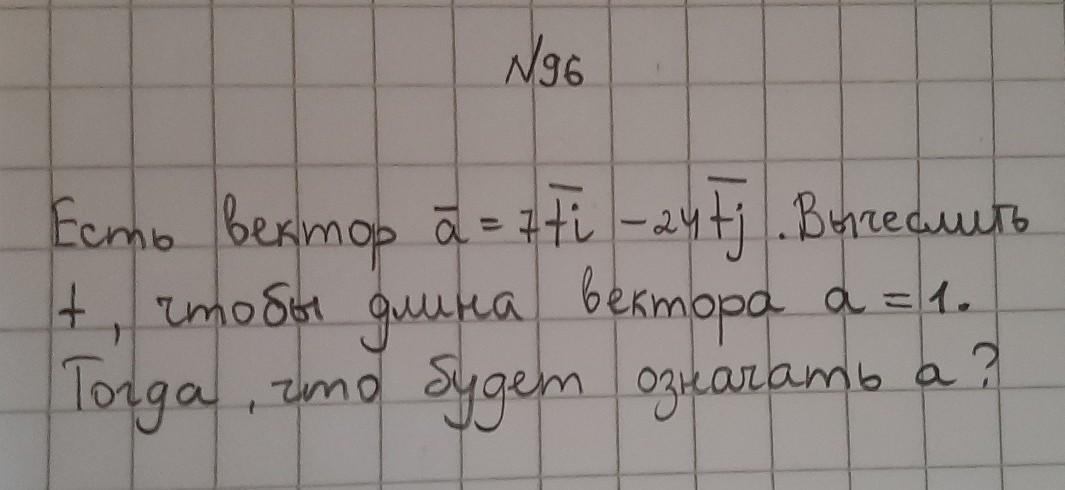 N96
Есть вектор a̅ = 7t̅i̅ - 24t̅j̅. Вычеслить
t, чтобы длина вектора a = 1.
Тогда, что будет означать a?